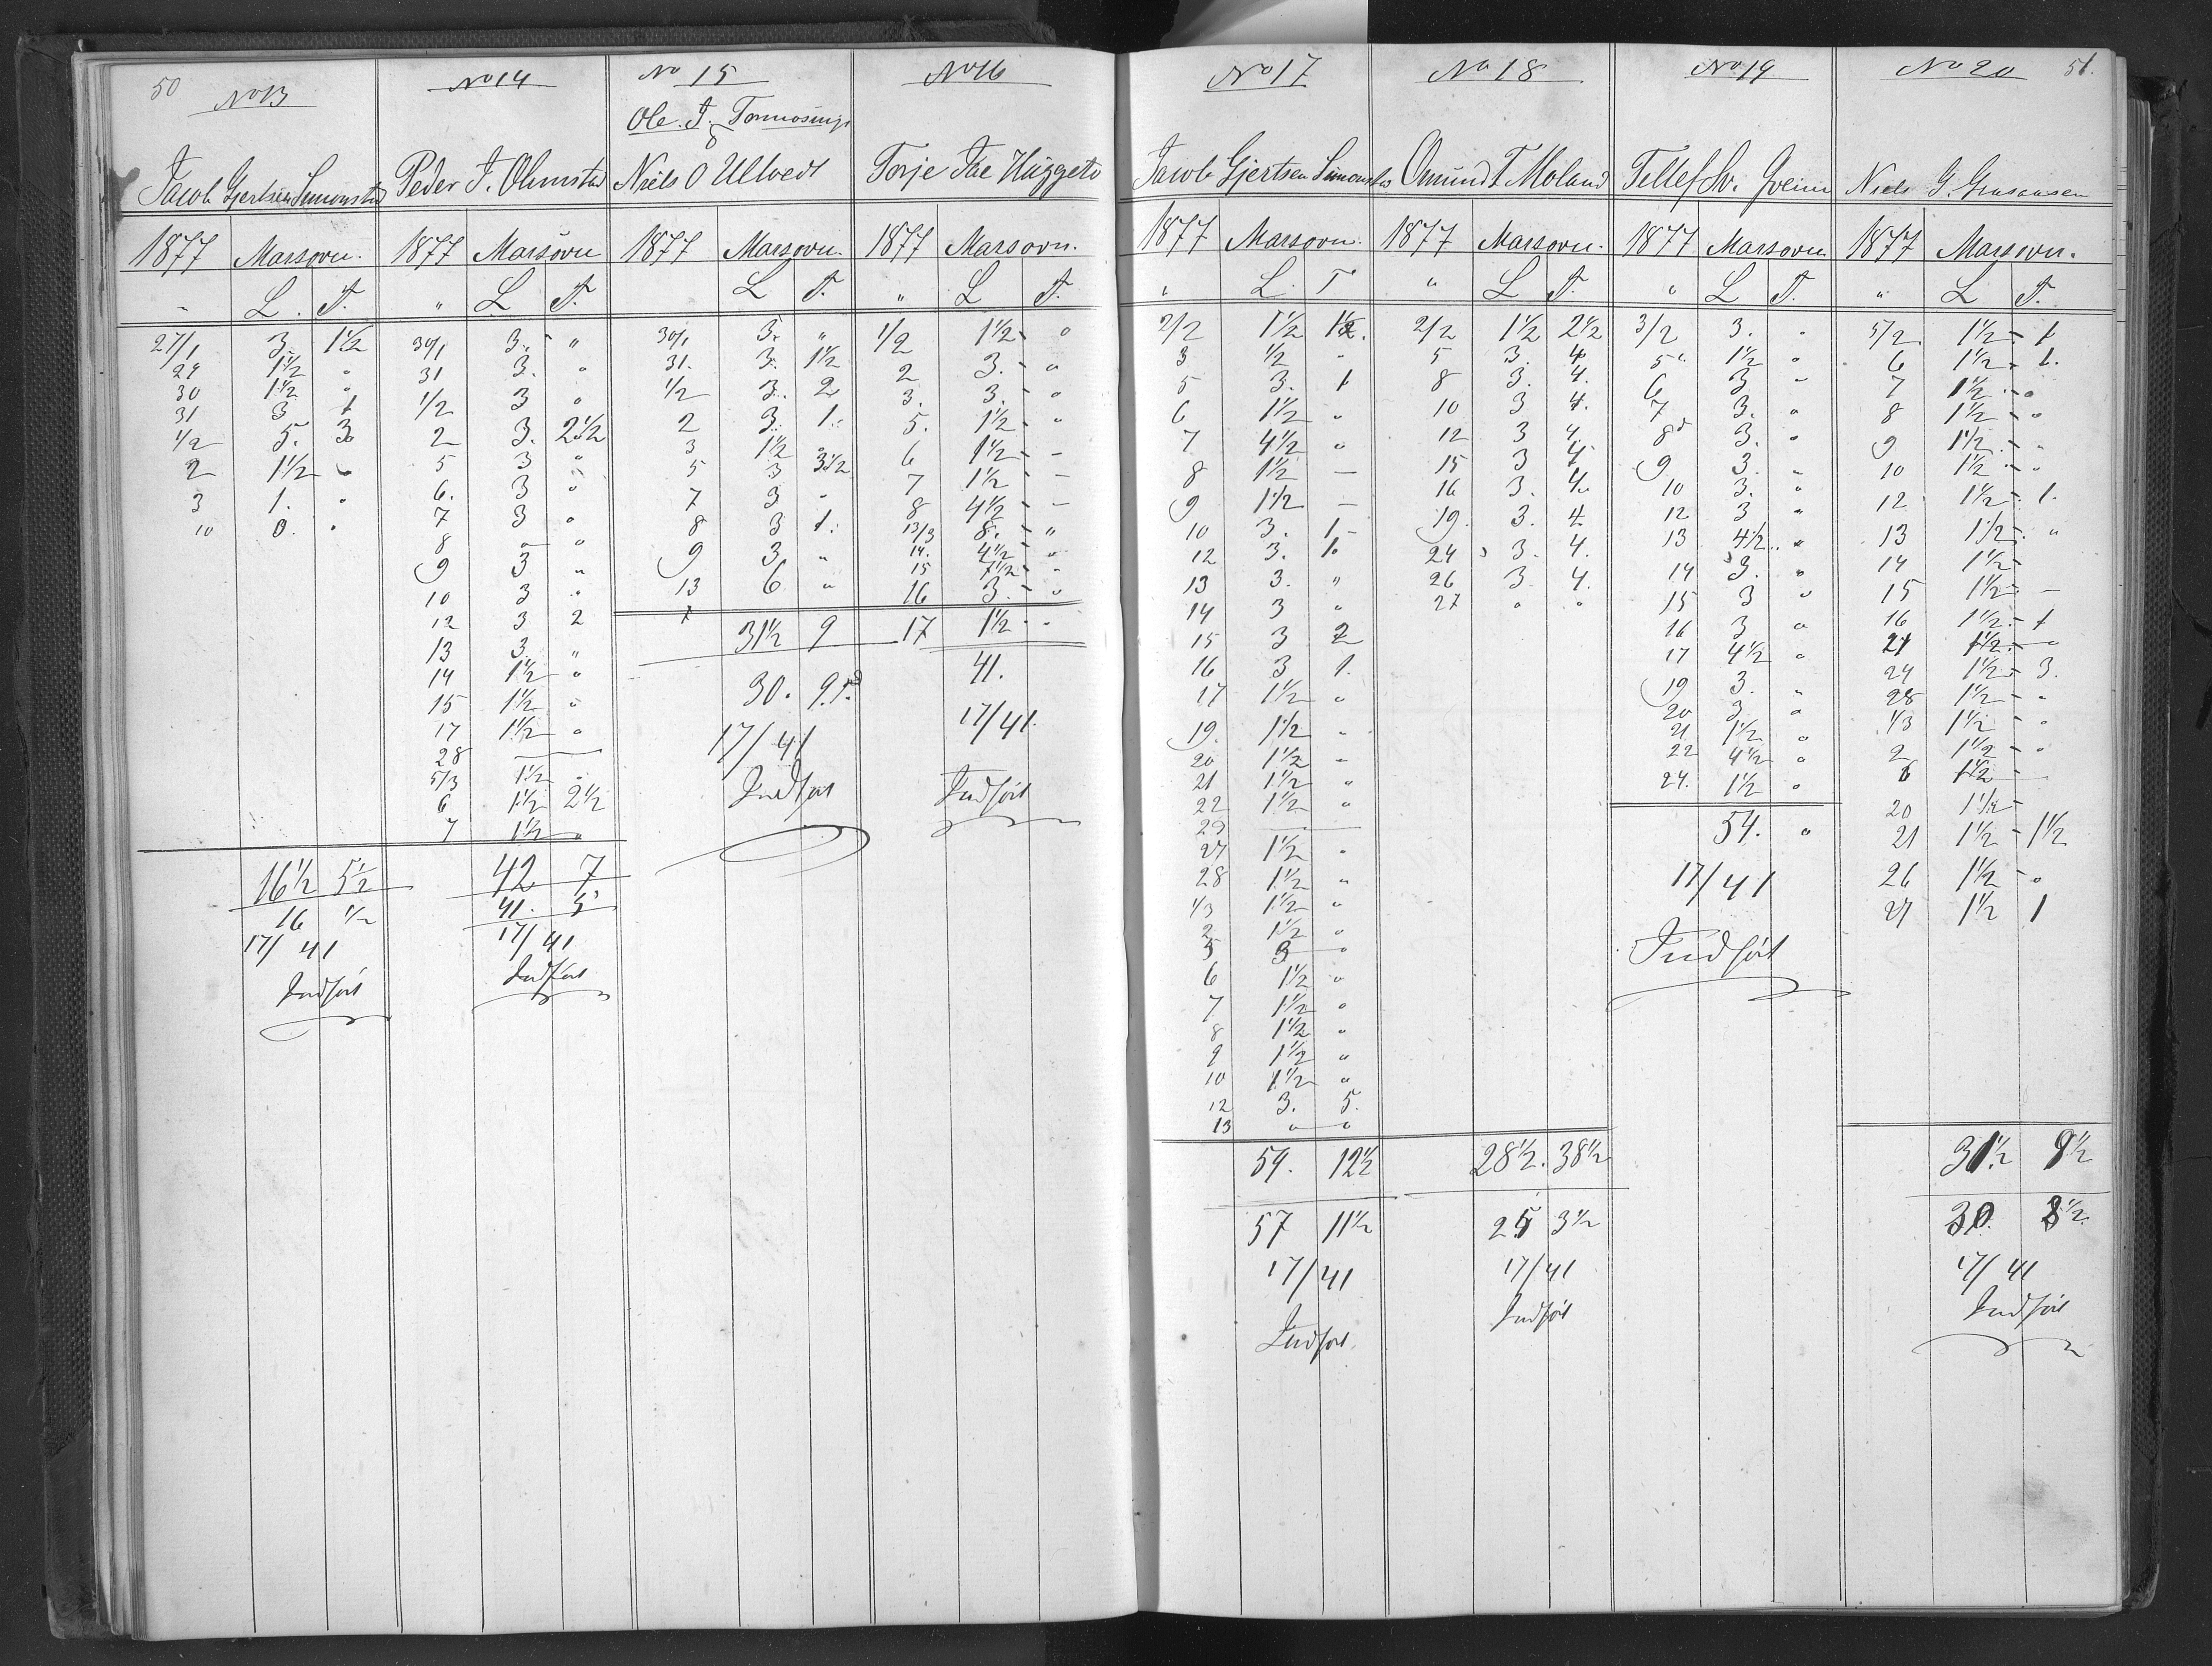 50
No 13
Jacob Gjertsen Simonstad
1877 Marsovn.
" L. T.
27/1 3. 1 1/2
29 1 1/2 "
30 1 1/2 "
31 3 1
1/2 5. 3
2 1 1/2 "
3 1. "
10 0. "
16 1/2 5 1/2
16 1/2
17/41
Indført
No 14
Peder T. Olimstad
1877 Marsovn
" L T.
30/1 3. "
31 3. "
1/2 3 "
2 3. 2 1/2
5 3 "
6. 3 "
7 3 "
8 " "
9 3 "
10 3 "
12 3 2
13 3. "
14 1 1/2 "
15 1 1/2 "
17 1 1/2 "
28 —
5/3 1 1/2 "
6 1 1/2 2 1/2
7 1 1/2 "
42 7
41. 5
17/41
Indført
No 15
Ole. T.
&
Niels O Ulltvedt
1877 Marsovn.
L T.
30/1 3. "
31. 3. 1 1/2
1/2 3. 2
2 3. 1.
3 1 1/2 "
5 3 3 1/2
7 3 "
8 3 1.
9 3. "
13 6 "
31 1/2 9
30. 9.
17/41
Indført
No 16
Torje Huggeto
1877 Marsovn.
" L T.
1/2 1 1/2 "
2 3. "
3. 3. "
5. 1 1/2 "
6 1 1/2 -
7 1 1/2 -
8 4 1/2 -
13/3 8. "
14. 4 1/2 "
15 7 1/2 "
16 3. "
17 1 1/2 "
41.
17/41.
Indført
51.
No 17
Jacob Gjertsen Simonstad
1877 Marsovn.
" L. T
2/2 1 1/2
3 1/2 "
5 3. 1
6 1 1/2 "
7 4 1/2 "
8 1 1/2 —
9 1 1/2 —
10 3. 1
12 3. 1.
13 3. "
14 3 "
15 3 2
16 3 1.
17 1 1/2 "
19. 1 1/2 "
20 1 1/2 "
21 1 1/2 "
22 1 1/2 "
23 —
27 1 1/2 "
28 1 1/2 "
1/3 1 1/2 "
2 1 1/2 "
5 3 "
6 1 1/2 "
7 1 1/2 "
8 1 1/2 "
9 1 1/2 "
10 1 1/2 "
12 3. 5.
13 " "
59. 12 1/2
57 11 1/2
17/41
Indført.
No 18
Omund T. Moland
1877 Marsovn.
" L T.
2/2 1 1/2 2 1/2
5 3. 4
8 3. 4.
10 3 4.
12 3 4
15 3 4
16 3. 4.
19. 3. 4
24 3. 4.
26 3 4.
27 " "
28 1/2. 38 1/2
25 3 1/2
17/41
Indført
No 19
Tellef Sv.
1877 Marsovn
" L T.
3/2 3. "
5 1 1/2 "
6 3 "
7 3. "
8 3. "
9 3. "
10 3. "
12 3 "
13 4 1/2 "
14 3. "
15 3 "
16 3 "
17 4 1/2 "
19 3. "
20 3 "
21 1 1/2 "
22 4 1/2 "
24. 1 1/2 "
54. "
17/41
Indført
No 20
Niels G.
1877 Marsovn.
" L T.
5/2 1 1/2 - 1
6 1 1/2 - 1.
7 1 1/2 - "
8 1 1/2 - "
9 1 1/2 - "
10 1 1/2 - "
12 1 1/2 - 1.
13 1 1/2 - "
14 1 1/2 -
15 1 1/2 -
16 1 1/2 - 1
21 1 1/2 "
24 1 1/2 - 3.
28 1 1/2 - "
1/3 1 1/2 - "
2 1 1/2 - "
6 1 1/2 -
20 1 1/2 -
21 1 1/2 - 1 1/2
26 1 1/2 - "
27 1 1/2 1
31 1/2 9 1/2
30. 8 1/2
17/41
Indført